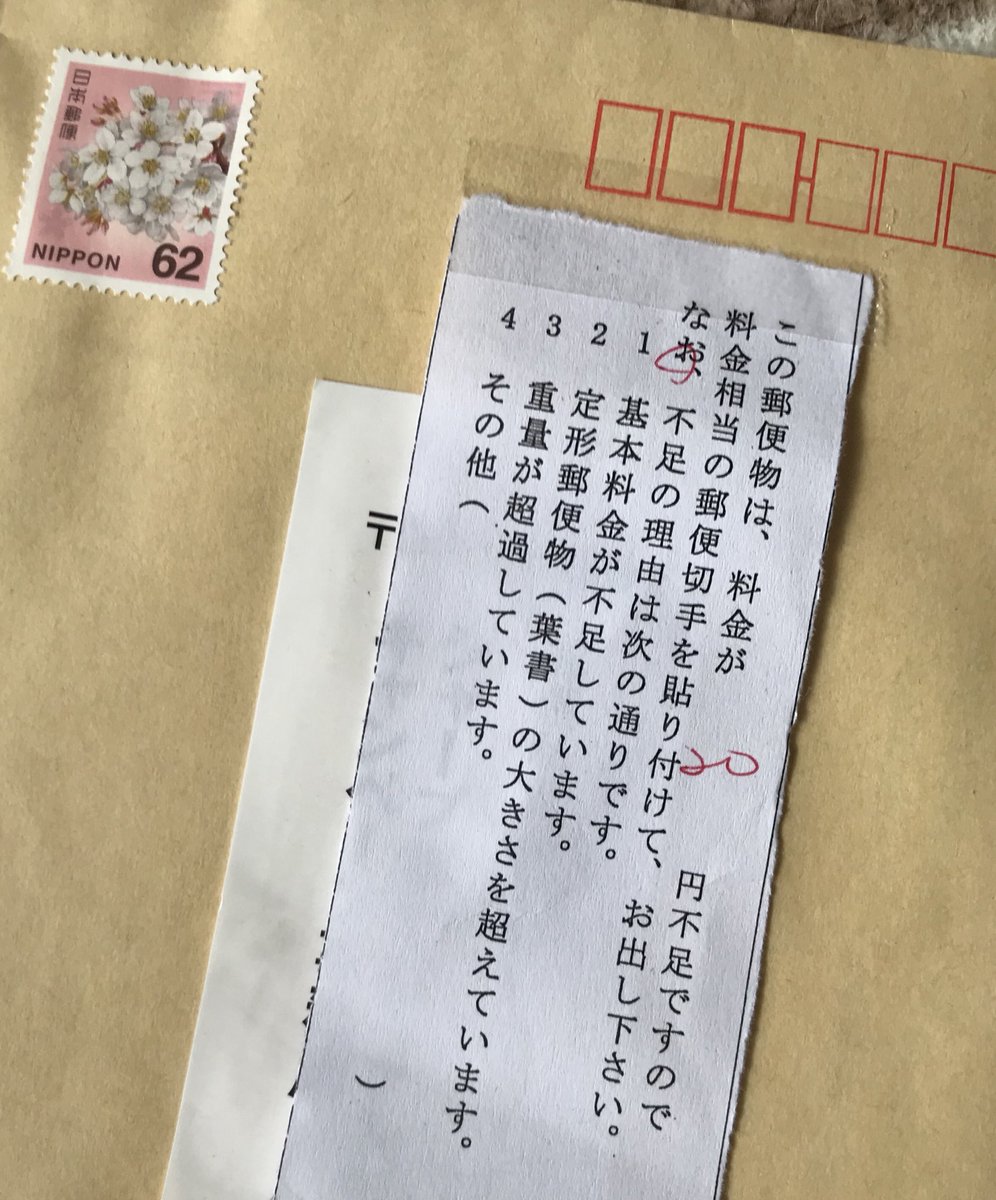 日本郵便
NIPPON 62
この郵便物は、料金が 20 円不足ですので
料金相当の郵便切手を貼り付けて、お出し下さい。
なお、不足の理由は次の通りです。
1 基本料金が不足しています。
2 定形郵便物(葉書)の大きさを超えています。
3 重量が超過しています。
4 その他( )
〒